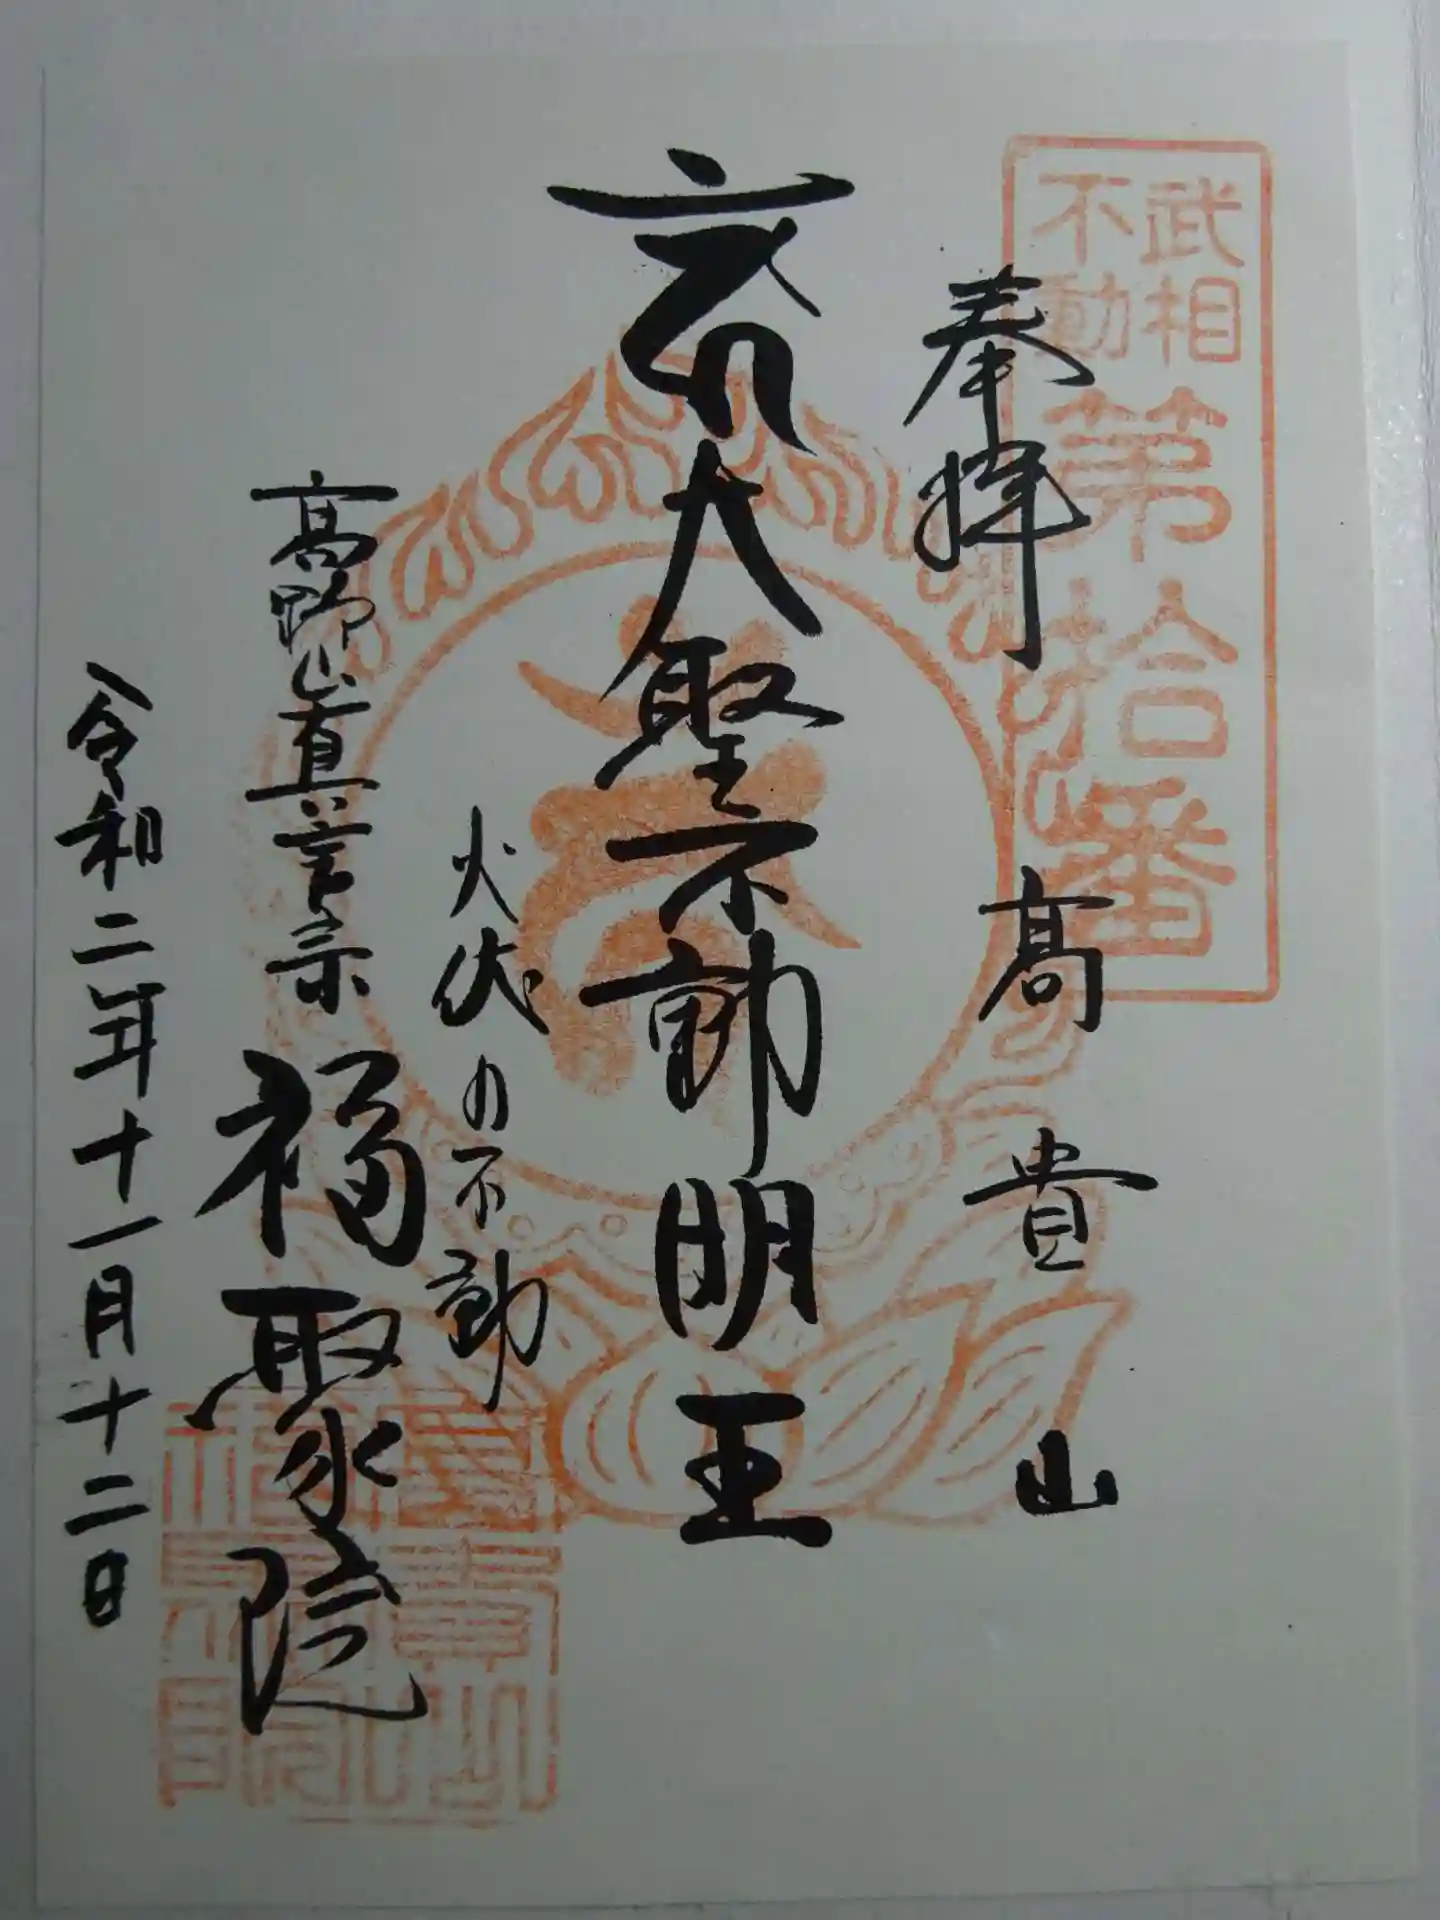 武相
不動
第拾番
奉拝
髙貴山
大聖不動明王
火伏の不動
髙野山真言宗
福聚院
令和二年十一月十二日